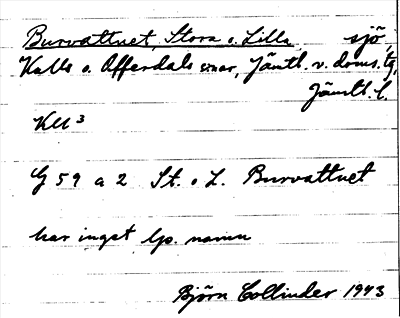 Burvattnet, Stora o. Lilla sjö,
Kalls o. Offerdals snar, Jämtl. v. doms. tg,
Jämtl. l.
KU³
G 59 a 2 St. o L. Burvattnet
har inget lp. namn
Björn Collinder 1943